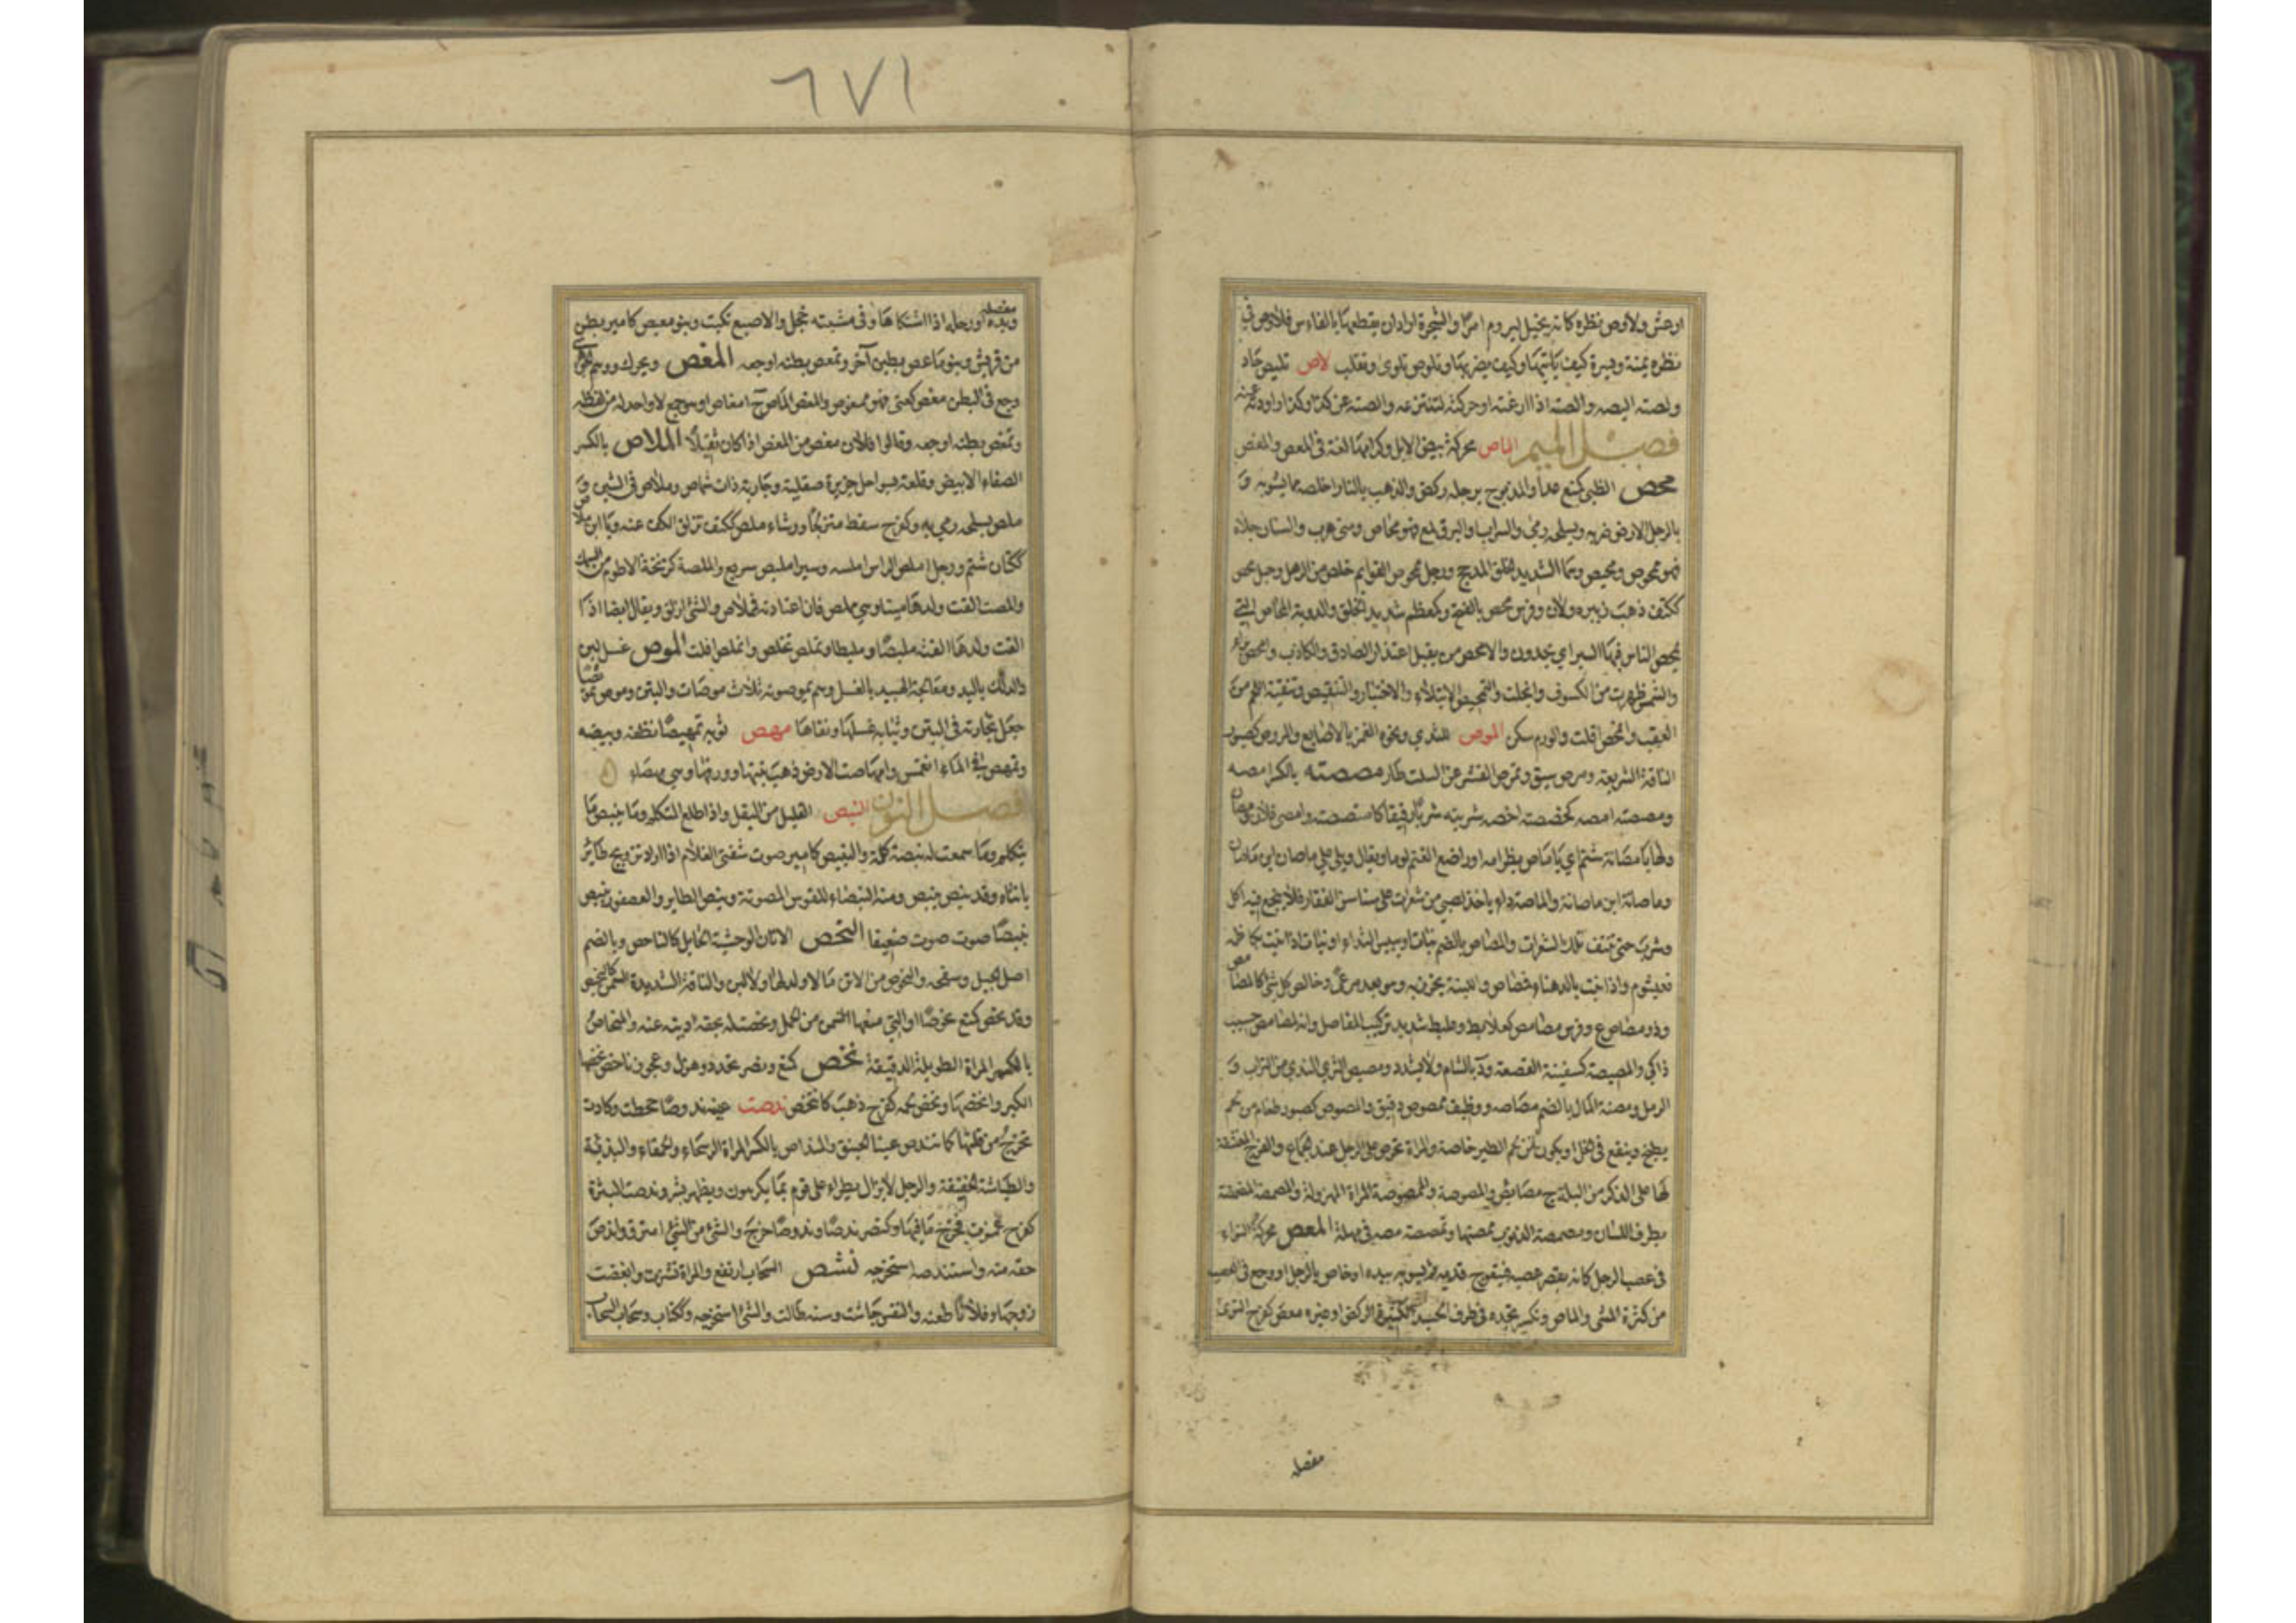 اوحش ولاوص نظره كانه يختل ليروم امرا والشجرة اراد ان يقطعها بالفاس فلاوص في
نظره يمنة ويسرة كيف ياتيها وكيف يضربها وتلوص تلوى وتقلب لاص تليص حاد
ولصته اليصه والصته اذا ارغته او حركته لتنتزعه والصته عن كذا وكذا راودته عنه
فصل الميم الماص محركة بيض الابل وكرامها لغة في المعص والمغص
محص الظبي كمنع عدا والمذبوح برجله ركض والذهب بالنار اخلصه مما يشوبه و
بالرجل الارض ضربه وبسلحه رمى والسراب والبرق لمع فهو محاص ومني هرب والسنان جلاه
فهو ممحوص ومحيص وهما الشديد الخلق المدمج ورجل ممحوص القوايم خلص من الرهل وحبل محص
ككتف ذهب زئبره ولان وفرس محص بالفتح وكمعظم شديد الخلق والدوية المحاص التي
يمحص الناس فيها السير اي يجدون والامحص من يقبل اعتذار الصادق والكاذب وامحص برا
والشمس ظهرت من الكسوف وانجلت والتمحيص الابتلاء والاختبار والتنقيص وتنقية اللحم من
العقب وانمحص افلت والورم سكن المرص للثدي ونحوه الغمز بالاصابع والمروص كصبور
الناقة السريعة ومرص سبق وتمرص القشر عن السلت طار مصصته بالكسر امصه
ومصصته امصه كخصصته اخصه شربته شربا رفيقا كامتصصته وامصني فلان ومصان
ولها يا مصانة شتم اي يا ماص بظر امه او راضع الغنم لوما ويقال ويلي على ماصان ابن ماصان
وماصانة ابن ماصانة والماصة داء ياخذ الصبي من شعرات على سناسن الفقار فلا ينجع فيه اكل
وشرب حتى تنتف تلك الشعرات والمصاص بالضم نبات او يبيس الثداء او نبات اذا نبت بكاظمة
فقيشوم واذا نبت بالدهناء فمصاص وللينه يخرز به وهو يعد مرعى وخالص كل شئ كالمصامص
وذو مصاص ع وفرس مصامص كعلابط وعلبط شديد تركيب المفاصل وانه لمصامص حسيب
زاكي والمصيصة كسفينة القصعة ود بالشام ولا يشدد ومصيص الثرى الندي من التراب و
الرمل ومصة المال بالضم مصاصه ووظيف ممصوص دقيق والمصوص كصبور طعام من لحم
يطبخ وينقع في الخل او يكون من لحم الطير خاصة والمراة تحرص على الرجل عند الجماع والفرج المنشفة
لما على الذكر من البلة ج مصايص والمصوصة والممصوصة المراة المهزولة والمصمصة المضمضة
بطرف اللسان ومصمصة الذنوب تمحيصها وتمصصه مصه في مهلة المعص محركة التواء
في عصب الرجل كانه يقصر عصبه فيتعوج قدمه ثم يسويه بيده او خاص بالرجل او وجع في العصب
من كثرة المشي والماص وتكسير تجده في طرف الجسد لكثرة الركض او غيره معص كفرح التوى
مفصله
١٧٦
مفصله ويده او رجله اذا اشتكاها وفي مشيته حجل والاصبع نكبت وبنو معيص كامير بطن
من قريش وبنو ماعص بطن آخر وتمعص بطنه اوجعه المغص ويحرك ووهم الجوهري
وجع في البطن مغص كعني فهو ممغوص والمغص الماص ج امغاص او هو جمع لا واحد له من لفظه
وتمغص بطنه اوجعه وقالوا فلان مغص من المغص اذا كان ثقيلا الملاص بالكسر
الصفاء الابيض وقلعة بسواحل جزيرة صقلية وجارية ذات شماص وملاص في الشين و
ملص بسلحه رمى به وكفرح سقط متزلجا ورشاء ملص ككتف تزلق الكف عنه ويا ابن ملاص
ككتان شتم ورجل املص الراس املسه وسير امليص سريع والملصة كزنخة الاطوم من السمك
واملصت القت ولدها ميتا وهي مملص فان اعتادته فمملاص والشئ ازلق ويقال ايضا اذا
القت ولدها القته مليصا ومليطا وتملص تخلص وانملص افلت الموص غسل لين
والدلك باليد ومعالجة الهبيد بالغسل وهم يموصونه ثلاث موصات والتبن وموص تمويصا
جعل تجارته في التبن وثيابه غسلها ونقاها مهص ثوبه تمهيصا نظفه وبيضه
وتمهص في الماء انغمس وامهاصت الارض ذهب نبتها وورقها وهي مهصاء
فصل النون النبص القليل من البقل واذا طلع التكلم وما ينبص ما
يتكلم وما سمعت له نبصة كلمة والنبيص كامير صوت شفتي الغلام اذا اراد تزويج طائر
بانثاه وقد نبص ينبص ومنه النبصاء للقوس المصوتة ونبص الطاير والعصفور ينبص
نبيصا صوت صوت ضعيفا النحص الاتان الوحشية الحايل كالناحص وبالضم
اصل الجبل وسفحه والنحوص من الاتن ما لا ولد لها ولا لبن والناقة الشديدة السمن كالنحيص
وقد نحص كمنع نحوصا او التي منعها السمن من الحمل ونحصت له بحقه اديته عنه والمنحاص
بالكسر المراة الطويلة الدقيقة نخص كمنع ونصر تخدد وهزل وعجوز ناخص نخصها
الكبر وانخصها ونخص لحمه كفرح ذهب كانتخص ندصت عينه ندوصا جحظت وكادت
تخرج من قلتها كما تندص عين الخنيق والمنداص بالكسر المراة الرسحاء والحمقاء والبذية
والطياشة الخفيفة والرجل لا يزال يطراء على قوم بما يكرهون ويظهر بشر وندصت البثرة
كفرح غمزت فخرج ما فيها وكنصر ندصا وندوصا خرج والشئ من الشئ امترق واندص
حقه منه واستندصه استخرجه نشص السحاب ارتفع والمراة نشزت وابغضت
زوجها وفلانا طعنه والنفس جاشت وسنه طالت والشئ استخرجه وككتاب وسحاب السحاب